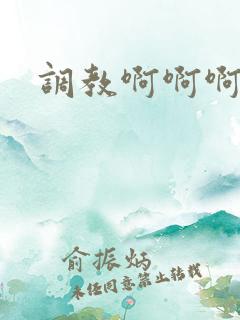 調教啊啊啊
俞振炳
未经同意禁止转载